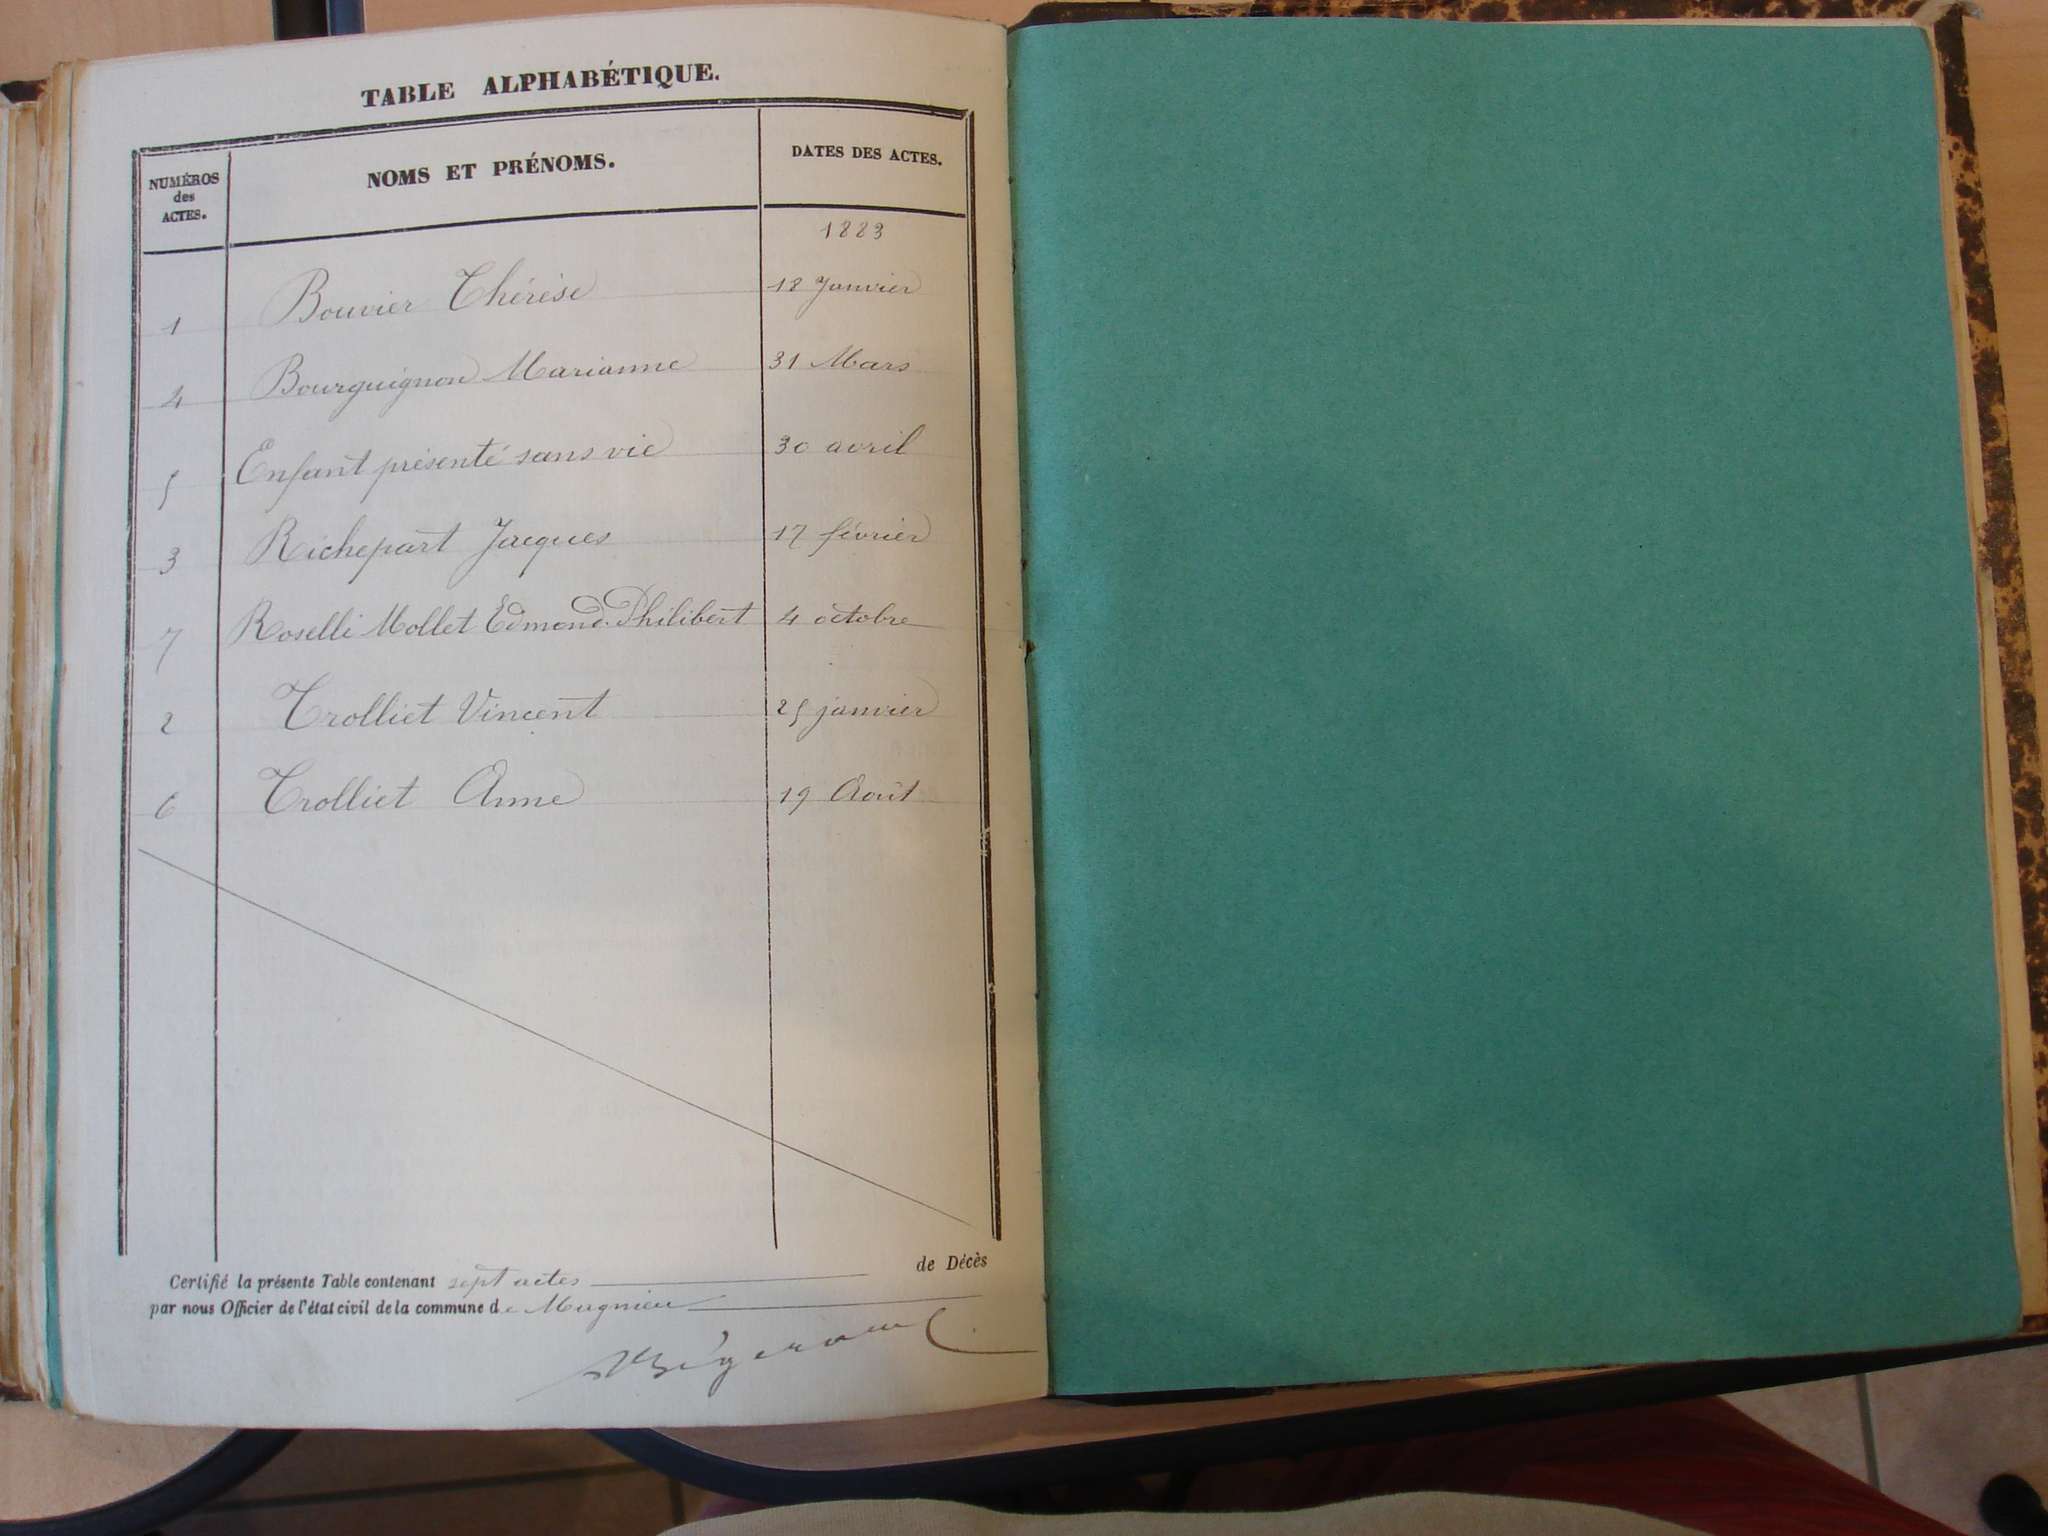 TABLE ALPHABÉTIQUE.
NUMÉROS des ACTES. NOMS ET PRÉNOMS. DATES DES ACTES.
1883
1 Bouvier Thérèse 18 Janvier
4 Bourguignon Marianne 31 Mars
5 Enfant présenté sans vie 30 avril
3 Richepart Jacques 17 février
7 Roselli Mollet Edmond Philibert 4 octobre
2 Trolliet Vincent 25 janvier
6 Trolliet Anne 19 Août
Certifié la présente Table contenant sept actes de Décès
par nous Officier de l'état civil de la commune de Magnieu